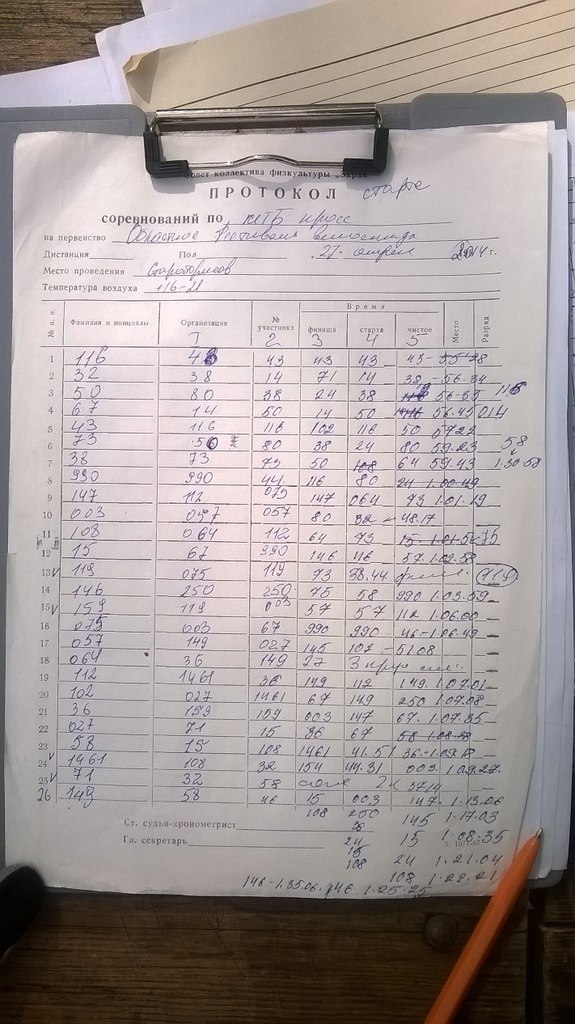 Совет коллектива физкультуры „Экран"
ПРОТОКОЛ старта
соревнований по МТБ кросс
на первенство Областное Фестиваль велосипеда
Дистанция Пол 27 апреля 2014 г.
Место проведения Староборисов
Температура воздуха +16-21
№ п. п. Фамилия и инициалы Организация № участника Время финиша старта чистое Место Разряд
1 2 3 4 5
1 116 43 43 43 43 - 55-28
2 32 38 14 71 14 38 - 56.34
3 50 80 38 24 38 56-55 116
4 67 14 50 14 50 56.45 014
5 43 116 116 102 116 50 57.22
6 73 50 80 38 24 80 59.23 58
7 38 73 73 50 64 59.43 1.30.58
8 990 990 44 116 80 24 1.00.49
9 147 112 075 147 064 73 1.01.19
10 003 057 057 80 32 - 48.17
11 108 064 112 64 73 15 - 1.01.52 75
12 15 67 990 146 46 57 1.02.58
13 119 075 119 73 38.44 финиш 119
14 146 250 250 75 58 990 1.03.59
15 159 119 003 57 57 112 1.06.00
16 075 003 67 990 990 46 - 1.06.49
17 057 149 027 145 102 - 51.08
18 064 36 149 27 3 круг
19 112 1461 36 149 112 149. 1.07.01
20 102 027 1461 67 149 250 1.07.08
21 36 159 159 003 147 67. 1.07.35
22 027 71 15 36 67 58 1.08.28
23 58 15 108 1461 41.51 36 - 1.09.18
24 1461 108 32 154 44.31 003. 1.09.27
25 71 32 58 37.14
26 149 58 46 15 003 147. 1.13.06
108 250 145 1.17.03
Ст. судья-хронометрист
24 15 1.08.35
Гл. секретарь
15
108 24 1.21.04
108 1.22.21
146 - 1.35.06. 146 1.25.25